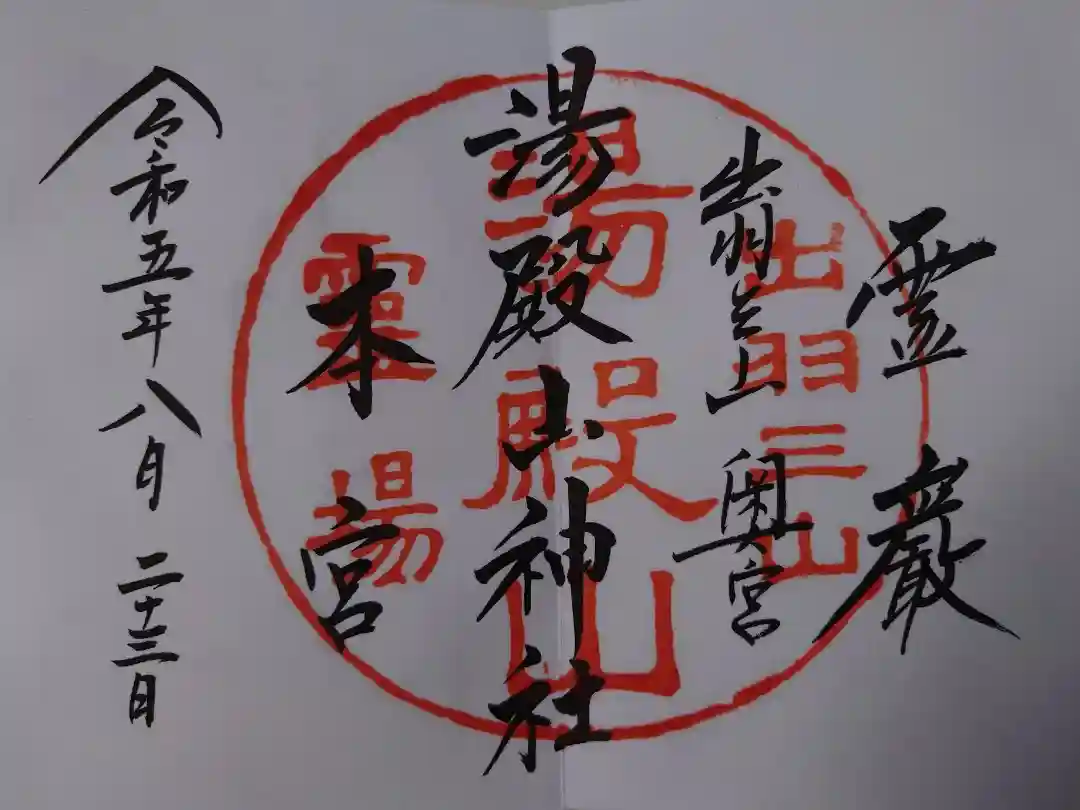 霊巌
出羽三山 奥宮
湯殿山神社
本宮
令和五年八月二十三日
出羽三山
湯殿山
靈場